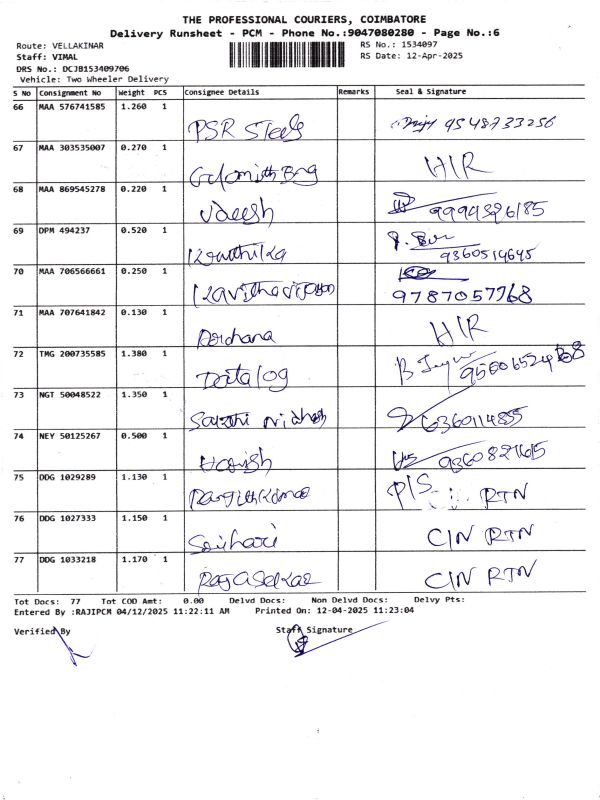 THE PROFESSIONAL COURIERS, COIMBATORE
Delivery Runsheet - PCM - Phone No.:9047080280 - Page No.:6
Route: VELLAKINAR RS No.: 1534097
Staff: VIMAL RS Date: 12-Apr-2025
DRS No.: DCJB153409706
Vehicle: Two Wheeler Delivery
S No Consignment No Weight PCS Consignee Details Remarks Seal & Signature
66 MAA 576741585 1.260 1 PSR Steels 9548733256
67 MAA 303535007 0.270 1 H/R
68 MAA 869545278 0.220 1 9994326185
69 DPM 494237 0.520 1 Kruthika 9360514645
70 MAA 706566661 0.250 1 9787057768
71 MAA 707641842 0.130 1 Archana H/R
72 TMG 200735585 1.380 1 Datalog
73 NGT 50048522 1.350 1 6360114855
74 NEY 50125267 0.500 1 Harish
75 DDG 1029289 1.130 1 P/S RTN
76 DDG 1027333 1.150 1 Srihari C/N RTN
77 DDG 1033218 1.170 1 Rajasekar C/N RTN
Tot Docs: 77 Tot COD Amt: 0.00 Delvd Docs: Non Delvd Docs: Delvy Pts:
Entered By :RAJIPCM 04/12/2025 11:22:11 AM Printed On: 12-04-2025 11:23:04
Verified By Staff Signature